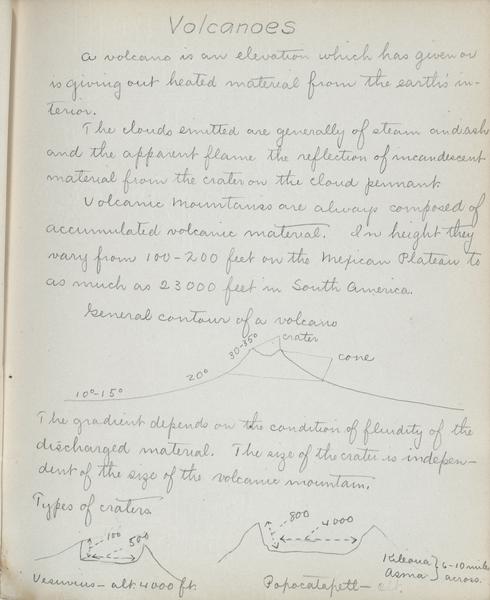 Volcanoes
A volcano is an elevation which has given or
is giving out heated material from the earth's in-
terior.
The clouds emitted are generally of steam and ash
and the apparent flame the reflection of incandescent
material from the crater on the cloud pennant.
Volcanic Mountains are always composed of
accumulated volcanic material. In height they
vary from 100-200 feet on the Mexican Plateau to
as much as 23000 feet in South America.
General contour of a volcano
crater
30-35°
cone
20°
10°-15°
The gradient depends on the condition of fluidity of the
discharged material. The size of the crater is indepen-
dent of the size of the volcanic mountain.
Types of craters
100
500
800
4000
Vesuvius - alt. 4000 ft.
Popocatapetl - alt.
Kileaua
Asma
6-10 miles
across.